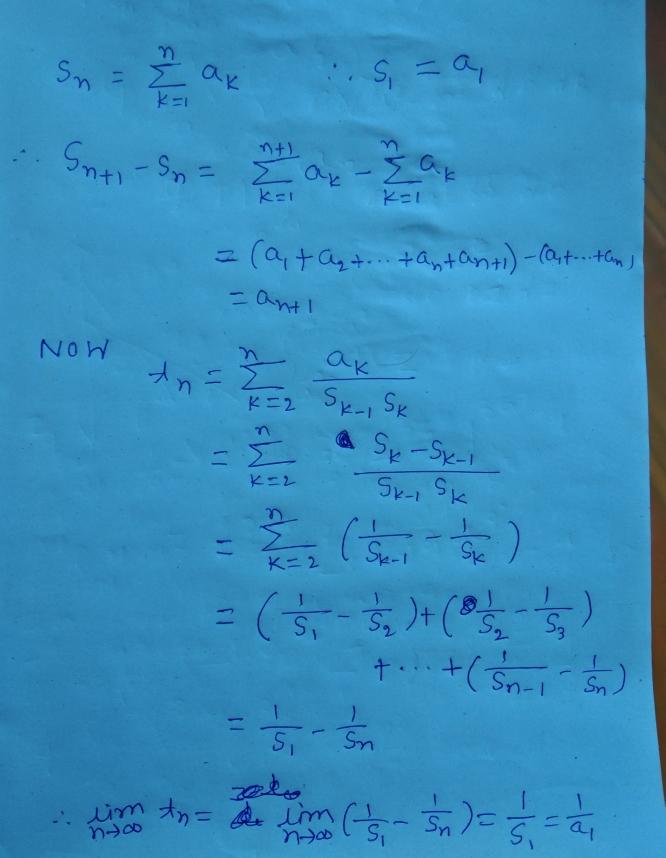 Sₙ = Σₖ₌₁ⁿ aₖ ∴ S₁ = a₁
∴ Sₙ₊₁ − Sₙ = Σₖ₌₁ⁿ⁺¹ aₖ − Σₖ₌₁ⁿ aₖ
= (a₁ + a₂ + ... + aₙ + aₙ₊₁) − (a₁ + ... + aₙ)
= aₙ₊₁
NOW tₙ = Σₖ₌₂ⁿ aₖ / (Sₖ₋₁ Sₖ)
= Σₖ₌₂ⁿ (Sₖ − Sₖ₋₁) / (Sₖ₋₁ Sₖ)
= Σₖ₌₂ⁿ (1/Sₖ₋₁ − 1/Sₖ)
= (1/S₁ − 1/S₂) + (1/S₂ − 1/S₃)
+ ... + (1/Sₙ₋₁ − 1/Sₙ)
= 1/S₁ − 1/Sₙ
∴ lim n→∞ tₙ = lim n→∞ (1/S₁ − 1/Sₙ) = 1/S₁ = 1/a₁